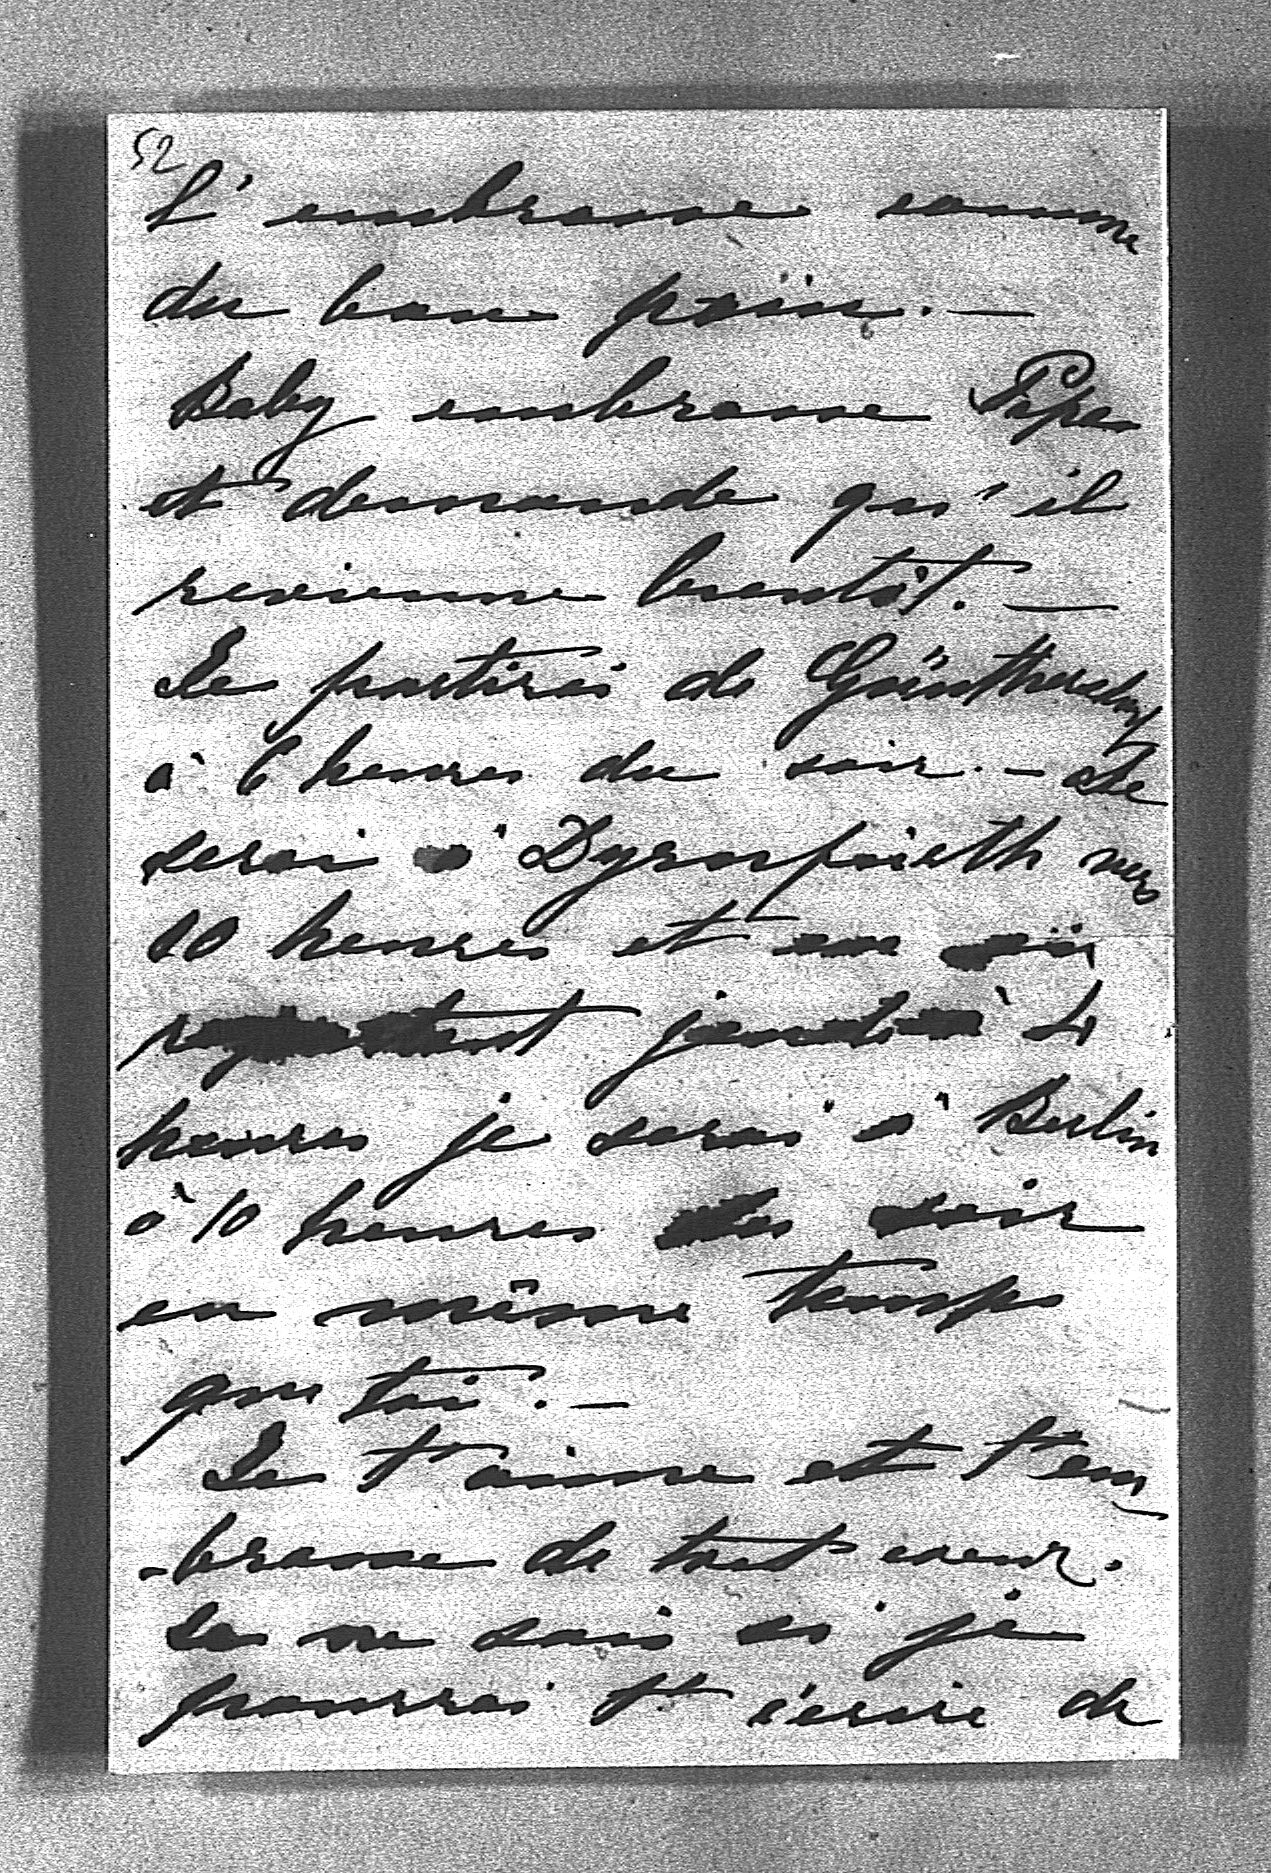 52
L' embrasse comme
du bon pain. —
Baby embrasse Papa
et demande qu'il
revienne bientôt. —
Je partirai de Günthersdorf
à 6 heures du soir. — Je
serai à Dyrnfurth vers
10 heures et en
partant jeudi à 4
heures je serai à Berlin
à 10 heures du soir
en même temps
que toi. —
Je t'aime et t'em
-brasse de tout coeur.
Je ne sais si je
pourrai t' écrire de